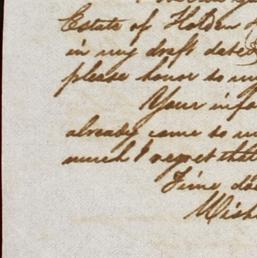 Estate of Holden
in my draft
please honor to my
Your info
already come to
much I regret that
Time
Wish